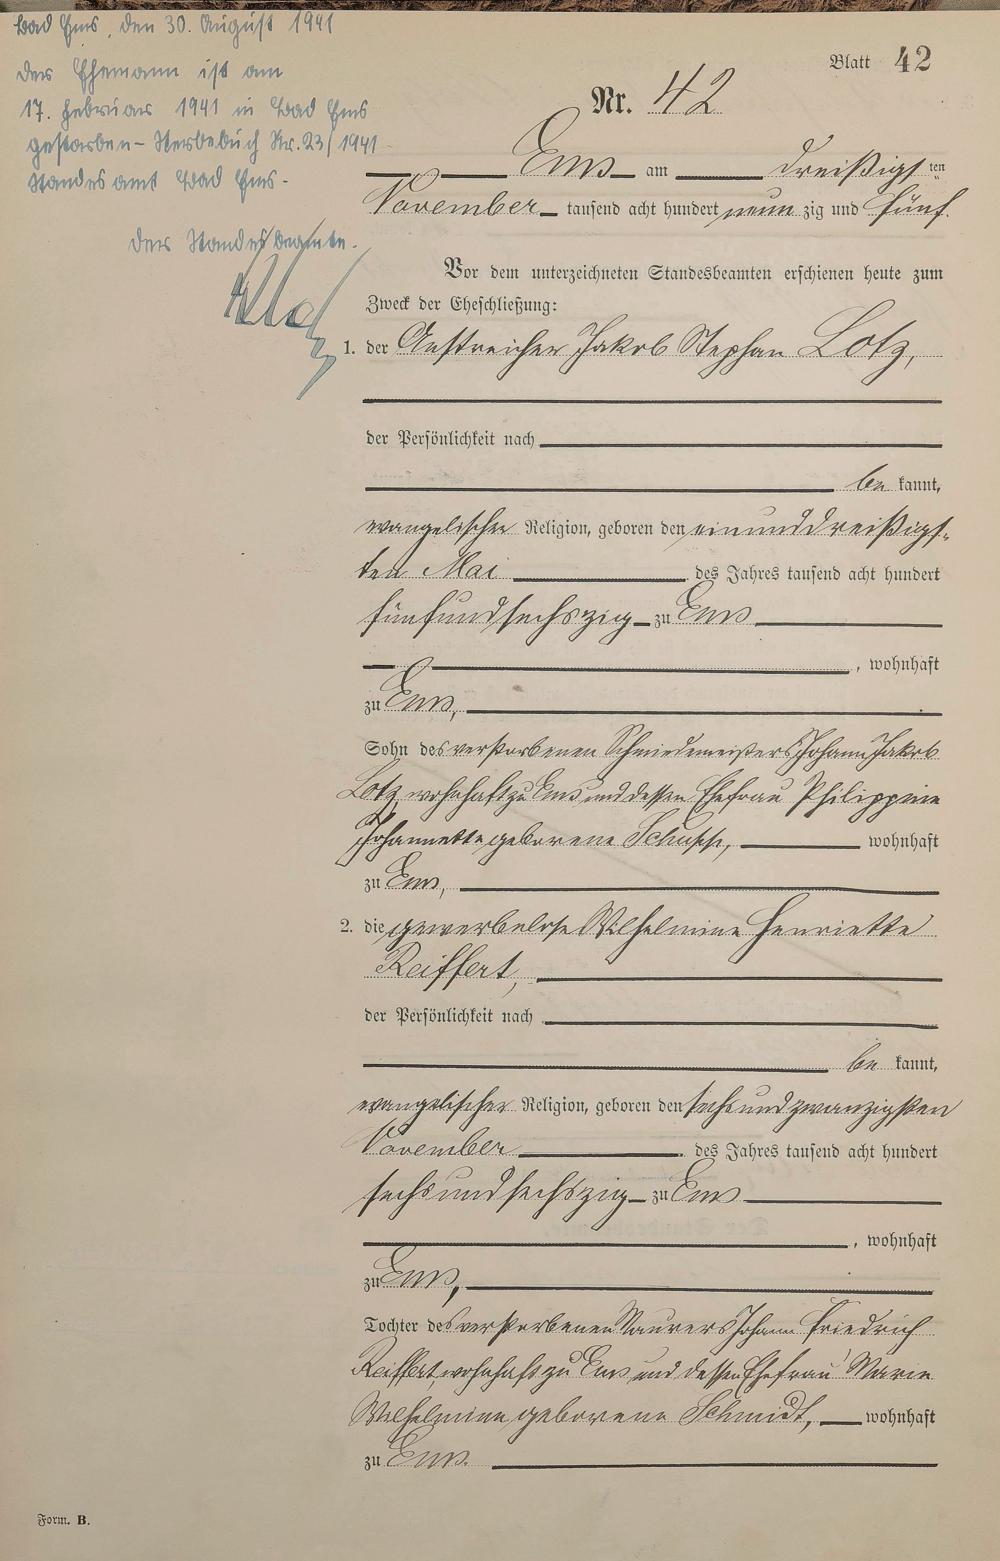 Bad Ems, den 30. August 1941
Der Ehemann ist am
17. Februar 1941 in Bad Ems
gestorben - Sterbebuch Nr. 23/1941
Standesamt Bad Ems.
Der Standesbeamte.
Blatt 42
Nr. 42
Ems am dreißigsten
November tausend acht hundert neunzig und fünf.
Vor dem unterzeichneten Standesbeamten erschienen heute zum
Zweck der Eheschließung:
1. der Anstreicher Jakob Stephan Lotz,
der Persönlichkeit nach
bekannt,
evangelischer Religion, geboren den einunddreißigs-
ten Mai des Jahres tausend acht hundert
fünfundsechszig zu Ems
, wohnhaft
zu Ems,
Sohn des verstorbenen Schmiedemeisters Johann Jakob
Lotz, wohnhaft zu Ems und dessen Ehefrau Philippine
Johannette geborene Schupp, wohnhaft
zu Ems,
2. die gewerbelose Wilhelmine Henriette
Reiffert,
der Persönlichkeit nach
bekannt,
evangelischer Religion, geboren den sechsundzwanzigsten
November des Jahres tausend acht hundert
sechsundsechszig zu Ems
, wohnhaft
zu Ems,
Tochter des verstorbenen Maurers Johann Friedrich
Reiffert, wohnhaft zu Ems und dessen Ehefrau Marie
Wilhelmine geborene Schmidt, wohnhaft
zu Ems.
Form. B.